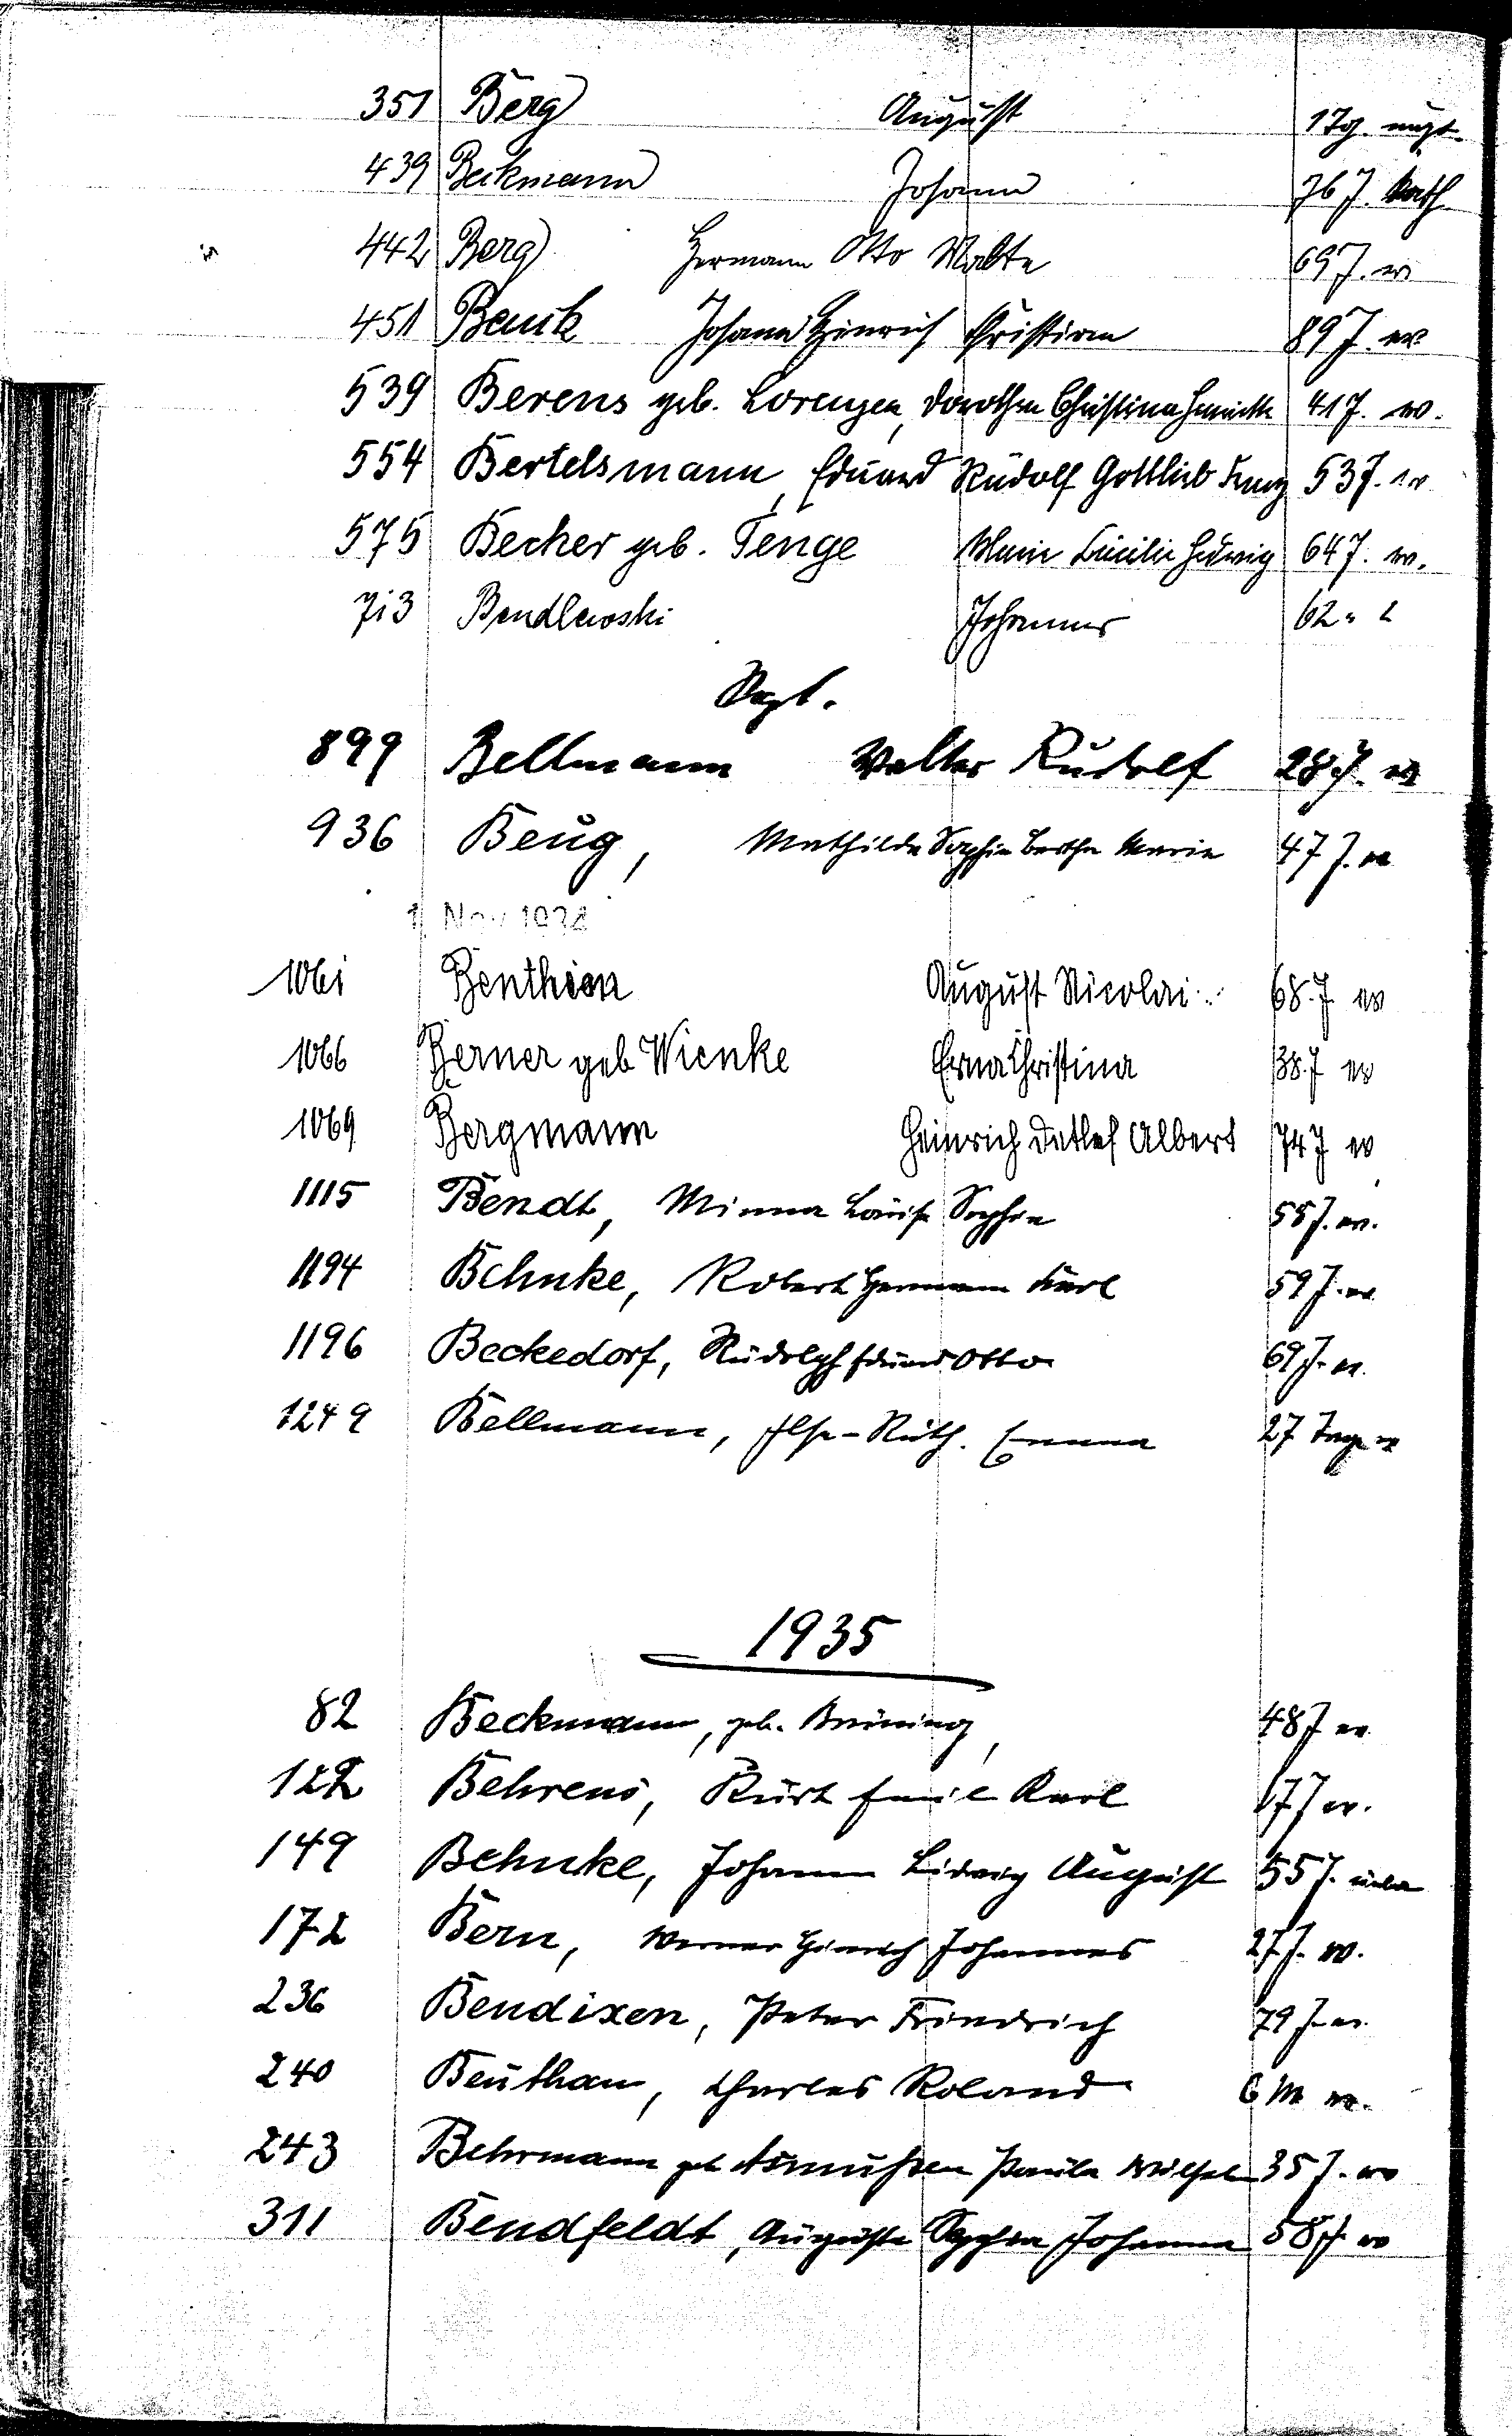 351 Berg August 1 Tg. ungt.
439 Beckmann Johann 76 J. kath
442 Berg Hermann Otto Malte 69 J. ev
451 Benck Johann Hinrich Christian 89 J. ev.
539 Berens geb. Lorenzen, Dorothea Christina Henriette 41 J. ev.
554 Bertelsmann, Eduard Rudolf Gottlieb Franz 53 J. ev
575 Becher geb. Tenge Marie Cäcilie Hedwig 64 J. ev.
713 Bendlewski Johannes 62 "
Sept.
899 Bellmann Walter Rudolf 28 J. ev
936 Beug, Mathilde Sophie Bertha Marie 47 J. ev
1. Nov 1934
1061 Benthien August Nicolai 68 J ev
1066 Berner geb Wienke Erna Christina 38 J ev
1069 Bergmann Heinrich Detlef Albert 74 J ev
1115 Bendt, Minna Louise Sophie 55 J. ev.
1194 Behnke, Robert Hermann Karl 59 J. ev
1196 Beckedorf, Rudolph Eduard Otto 69 J. ev.
1249 Bellmann, Ilse-Ruth. Emma 27 Tage ev
1935
82 Beckmann, geb. Brüning, 48 J ev.
122 Behrens, Kurt Emil Karl 17 J ev.
149 Behnke, Johann Ludwig August 55 J.
172 Bern, Werner Hinrich Johannes 27 J. ev.
236 Bendixen, Peter Friedrich 79 J. ev.
240 Beuthan, Charles Roland 6 M ev.
243 Behrmann geb Asmußen Paula 35 J. ev
311 Bendfeldt, Auguste Sophia Johanna 58 J. ev